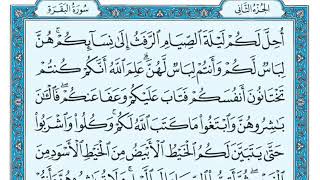 الجزء الثاني سورة البقرة
أُحِلَّ لَكُمْ لَيْلَةَ الصِّيَامِ الرَّفَثُ إِلَىٰ نِسَائِكُمْ ۚ هُنَّ
لِبَاسٌ لَكُمْ وَأَنْتُمْ لِبَاسٌ لَهُنَّ ۗ عَلِمَ اللَّهُ أَنَّكُمْ كُنْتُمْ
تَخْتَانُونَ أَنْفُسَكُمْ فَتَابَ عَلَيْكُمْ وَعَفَا عَنْكُمْ ۖ فَالْآنَ
بَاشِرُوهُنَّ وَابْتَغُوا مَا كَتَبَ اللَّهُ لَكُمْ ۚ وَكُلُوا وَاشْرَبُوا
حَتَّىٰ يَتَبَيَّنَ لَكُمُ الْخَيْطُ الْأَبْيَضُ مِنَ الْخَيْطِ الْأَسْوَدِ مِنَ